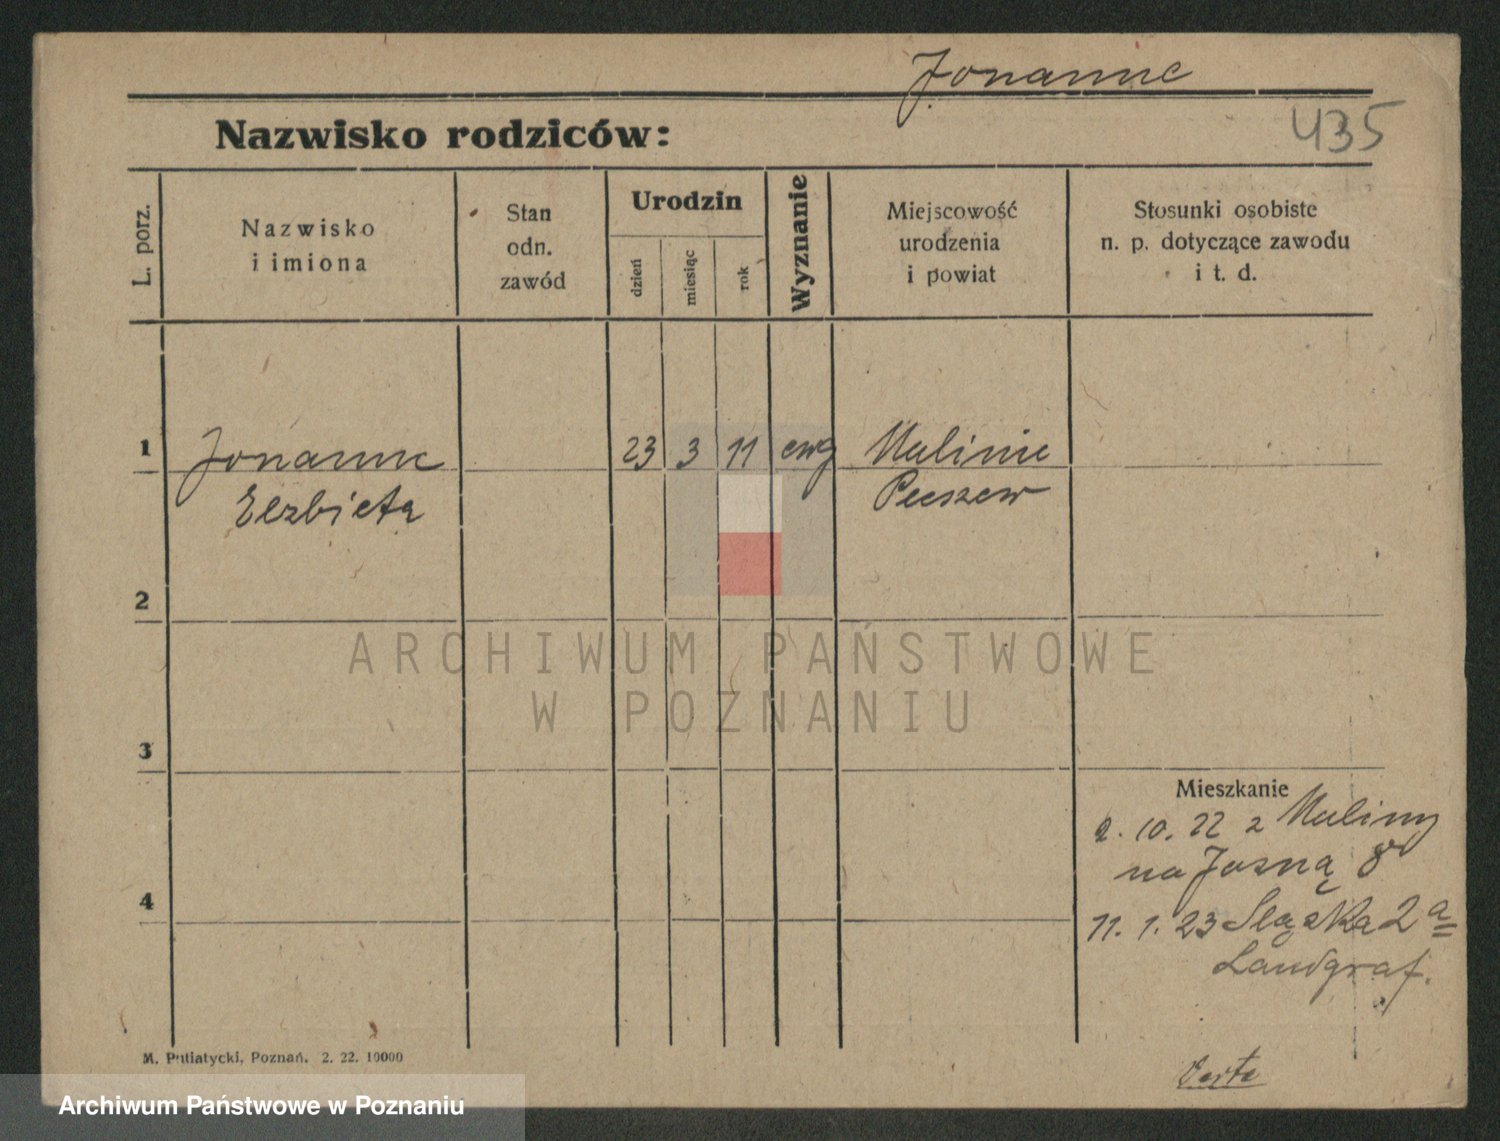 Jonanne
435
Nazwisko rodziców:
L. porz.
Nazwisko
i imiona
Stan
odn.
zawód
Urodzin
dzień
miesiąc
rok
Wyznanie
Miejscowość
urodzenia
i powiat
Stosunki osobiste
n. p. dotyczące zawodu
i t. d.
1
Jonanne 23 3 11 ewg Malinie
Elzbieta Pleszew
2
ARCHIWUM PAŃSTWOWE
W POZNANIU
3
Mieszkanie
2. 10. 22 z Maliny
na Jasną 8
4
11. 1. 23 Sląska 2 a
Landgraf.
M. Putiatycki, Poznań. 2. 22. 10000
Verte
Archiwum Państwowe w Poznaniu